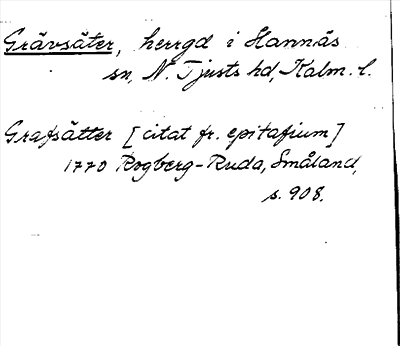 Grävsäter, herrgd i Hannäs
sn, N. Tjusts hd, Kalm. l.
Grafsätter [citat fr. epitafium]
1770 Rogberg-Ruda, Småland,
s. 908.